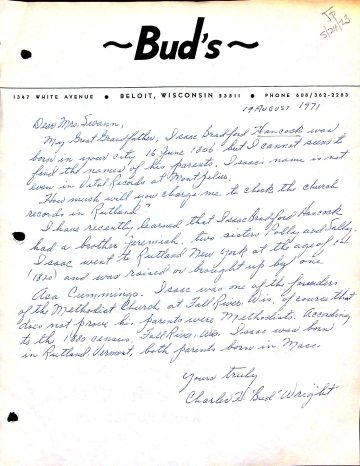 JP
5/24/23
~Bud's~
1347 WHITE AVENUE • BELOIT, WISCONSIN 53511 • PHONE 608/362-2283
19 August 1971
Dear Mrs. Swann,
My Great Grandfather, Isaac Bradford Hancock was
born in your city 16 June 1806 but I cannot seem to
find the names of his parents. Isaac's name is not
even in Vital Records at Montpelier.
How much will you charge me to check the church
records in Rutland?
I have recently learned that Isaac Bradford Hancock
had a brother Jeremiah, two sisters Polly and Sally.
Isaac went to Rutland New York at the age of 14
(1820) and was raised or brought up by one
Asa Cummings. Isaac was one of the founders
of the Methodist Church at Fall River, Wis. of course that
does not prove his parents were Methodists. According
to the 1880 census, Fall River, Wis. Isaac was born
in Rutland Vermont, both parents born in Mass.
Yours truly
Charles W. "Bud" Wright